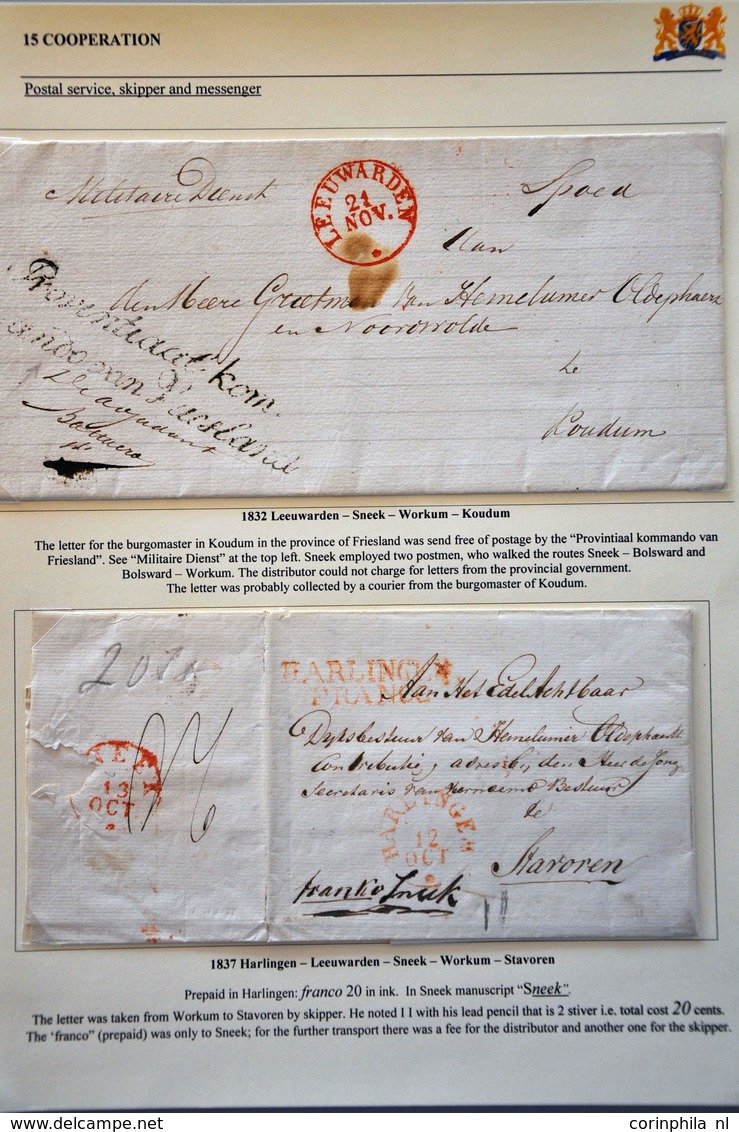 15 COOPERATION
Postal service, skipper and messenger
Militaire Dienst
LEEUWARDEN
21
NOV.
Spoed
Aan
den Heere Grietman van Hemelumer Oldephaert
en Noordwolde
te
Koudum
Provintiaal kom.
van Friesland
1832 Leeuwarden – Sneek – Workum – Koudum
The letter for the burgomaster in Koudum in the province of Friesland was send free of postage by the “Provintiaal kommando van
Friesland”. See “Militaire Dienst” at the top left. Sneek employed two postmen, who walked the routes Sneek – Bolsward and
Bolsward – Workum. The distributor could not charge for letters from the provincial government.
The letter was probably collected by a courier from the burgomaster of Koudum.
HARLINGEN
FRANCO
Aan Het Edel Achtbaar
Dijksbestuur van Hemelumer Oldephaert
Contributie, adres bij den Heer de Jong
Secretaris van Bestuur
te
Stavoren
13
OCT
HARLINGEN
12
OCT
franko Sneek
1837 Harlingen – Leeuwarden – Sneek – Workum – Stavoren
Prepaid in Harlingen: franco 20 in ink. In Sneek manuscript “Sneek”.
The letter was taken from Workum to Stavoren by skipper. He noted I I with his lead pencil that is 2 stiver i.e. total cost 20 cents.
The ‘franco” (prepaid) was only to Sneek; for the further transport there was a fee for the distributor and another one for the skipper.
corinphila nl